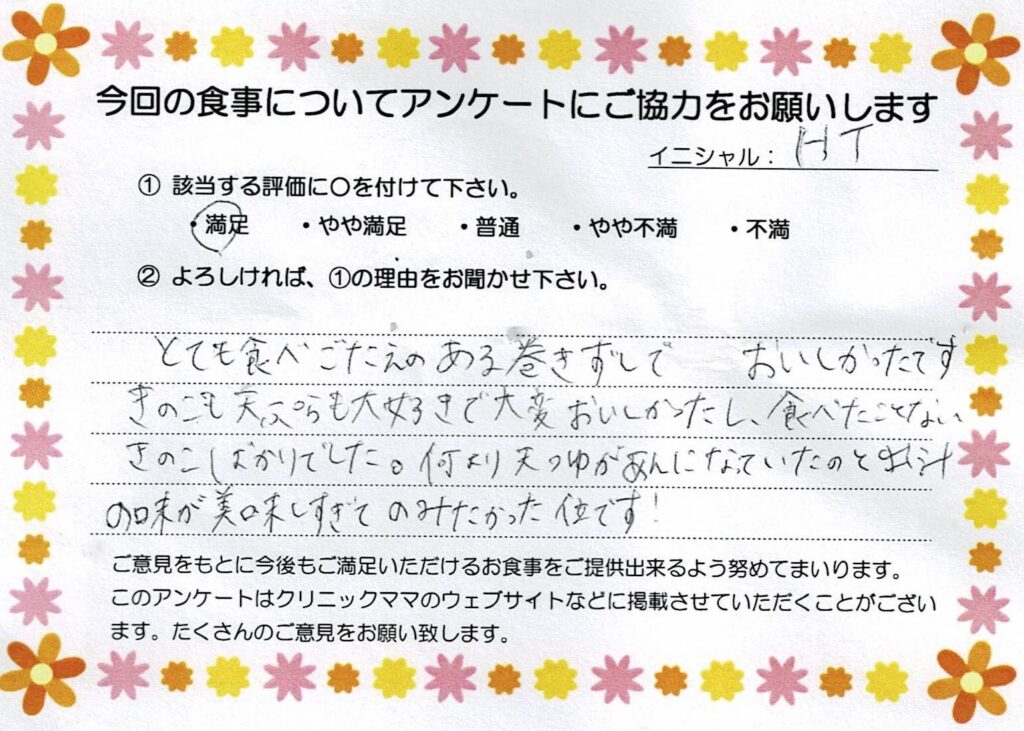 今回の食事についてアンケートにご協力をお願いします
イニシャル： HT
① 該当する評価に○を付けて下さい。
・満足 ・やや満足 ・普通 ・やや不満 ・不満
② よろしければ、①の理由をお聞かせ下さい。
とても食べごたえのある巻きずしで おいしかったです
きのこも天ぷらも大好きで大変おいしかったし、食べたことない
きのこばかりでした。何より天つゆがあんになっていたのと出汁
の味が美味しすぎてのみたかった位です！
ご意見をもとに今後もご満足いただけるお食事をご提供出来るよう努めてまいります。
このアンケートはクリニックママのウェブサイトなどに掲載させていただくことがござい
ます。たくさんのご意見をお願い致します。